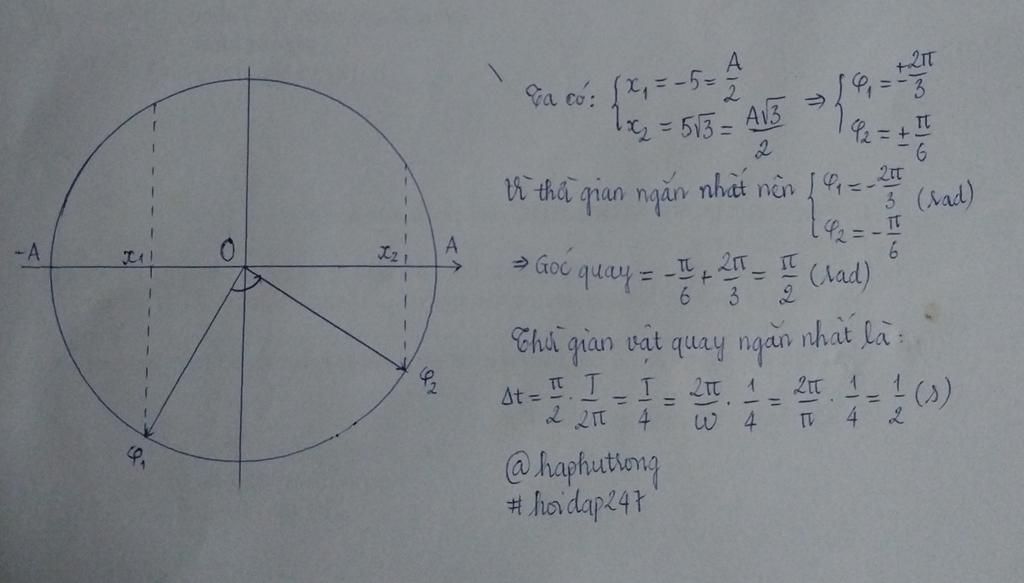 -A x₁ O x₂ A
φ₁
φ₂
Ta có: { x₁ = -5 = A/2 ; x₂ = 5√3 = A√3/2 ⇒ { φ₁ = ±2π/3 ; φ₂ = ± π/6
Vì thời gian ngắn nhất nên { φ₁ = -2π/3 ; φ₂ = -π/6 (rad)
⇒ Góc quay = -π/6 + 2π/3 = π/2 (rad)
Thời gian vật quay ngắn nhất là:
Δt = π/2 . T/2π = T/4 = 2π/ω . 1/4 = 2π/π . 1/4 = 1/2 (s)
@haphutrong
#hoidap247